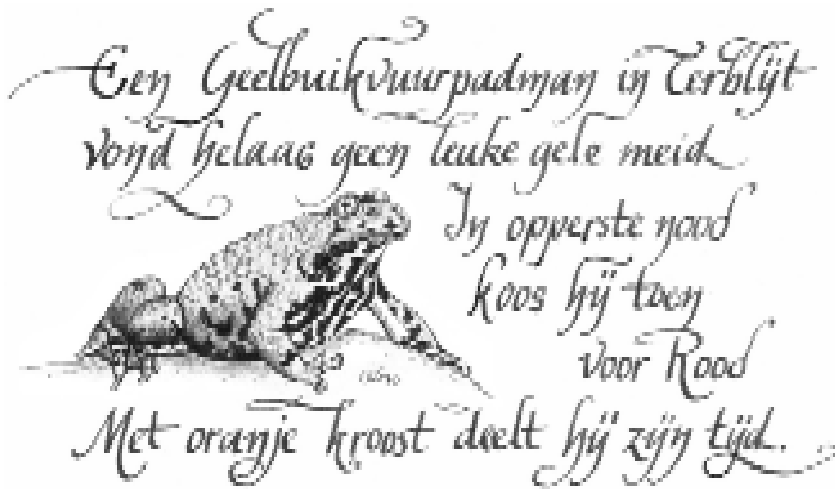 Een Geelbuikvuurpadman in Terblijt
vond helaas geen leuke gele meid
In opperste nood
koos hij toen
voor Rood
Met oranje kroost deelt hij zijn tijd.